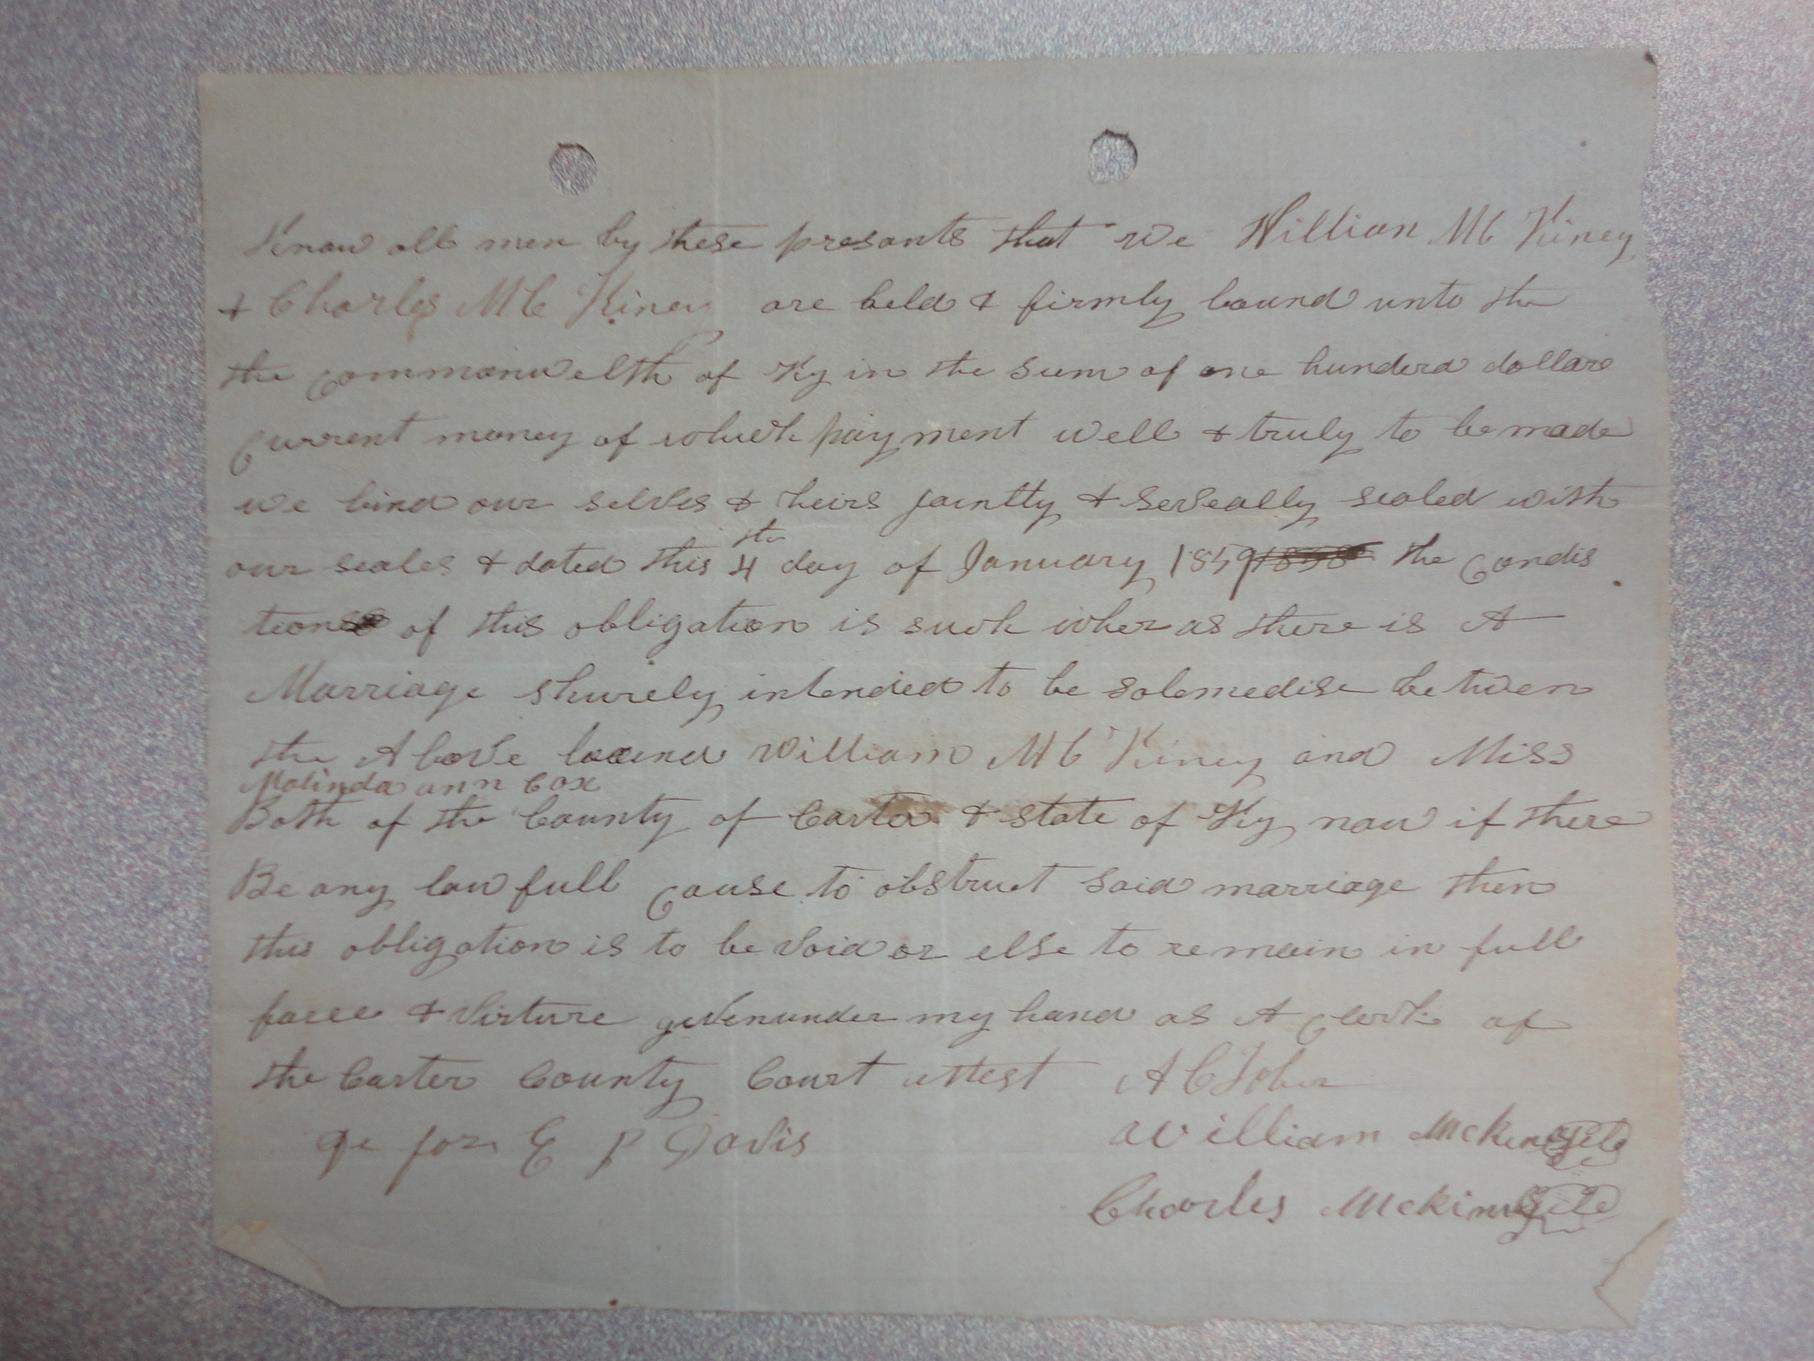 Know all men by these presants that we William Mc Kiney
& Charles Mc Kiney are held & firmly bound unto the
the commonwelth of Ky in the sum of one hunderd dollars
current money of which payment well & truly to be made
we bind our selves & heirs jointly & severally sealed with
our seales & dated this 4th day of January 1859 1858 the condis
tion of this obligation is such wher as there is A
Marriage shurely intended to be solemedise between
the Above bound William Mc Kiney and Miss
Malinda ann Cox
Both of the County of Carter & state of Ky now if there
Be any law full cause to obstruct said marriage then
this obligation is to be void or else to remain in full
force & virture given under my hand as A clerk of
the Carter County Court attest A C
for E P Davis William Mckiney
Charles Mckiney